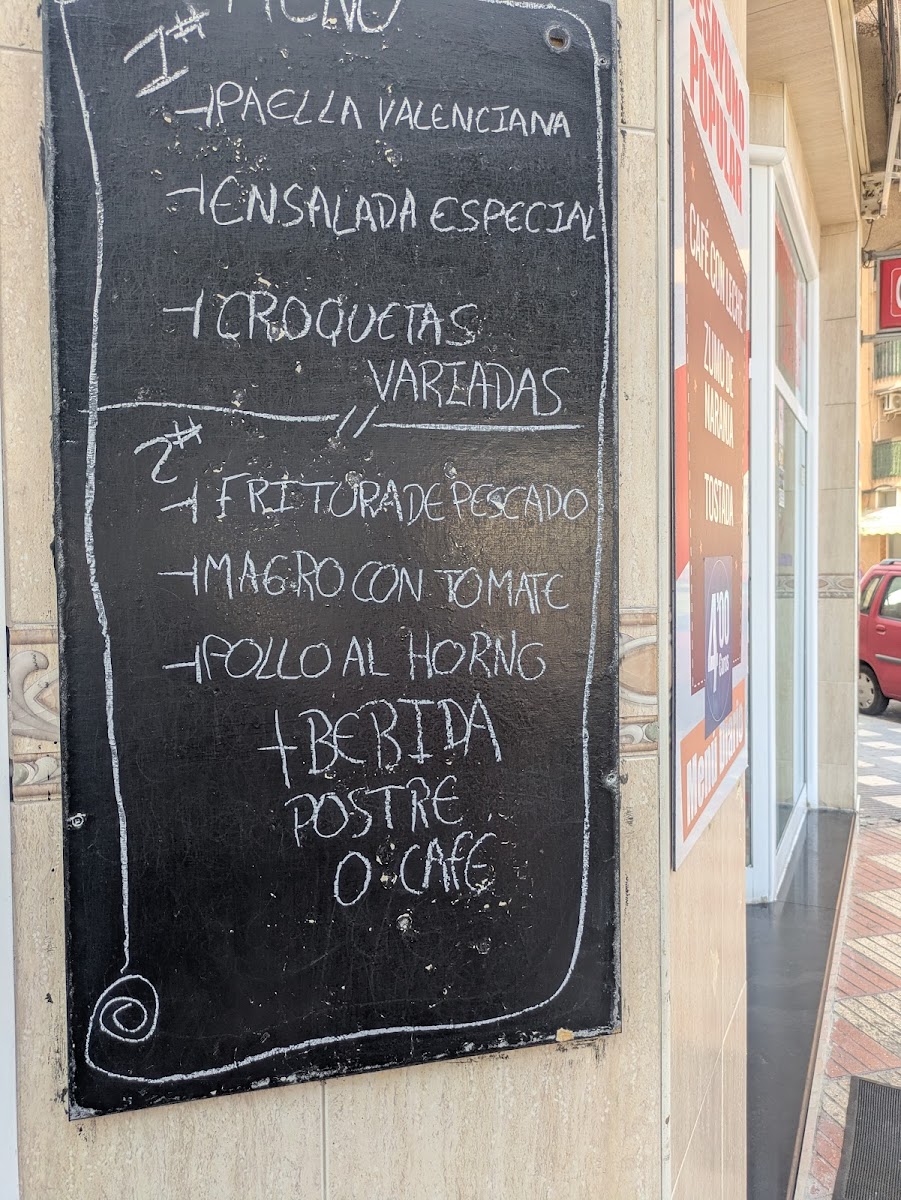 MENÚ
1#
PAELLA VALENCIANA
ENSALADA ESPECIAL
CROQUETAS
VARIADAS
2#
FRITURA DE PESCADO
MAGRO CON TOMATE
POLLO AL HORNO
+ BEBIDA
POSTRE
O CAFÉ
DESAYUNO
POPULAR
CAFÉ CON LECHE
ZUMO DE
NARANJA
TOSTADA
4'00
Menú Diario